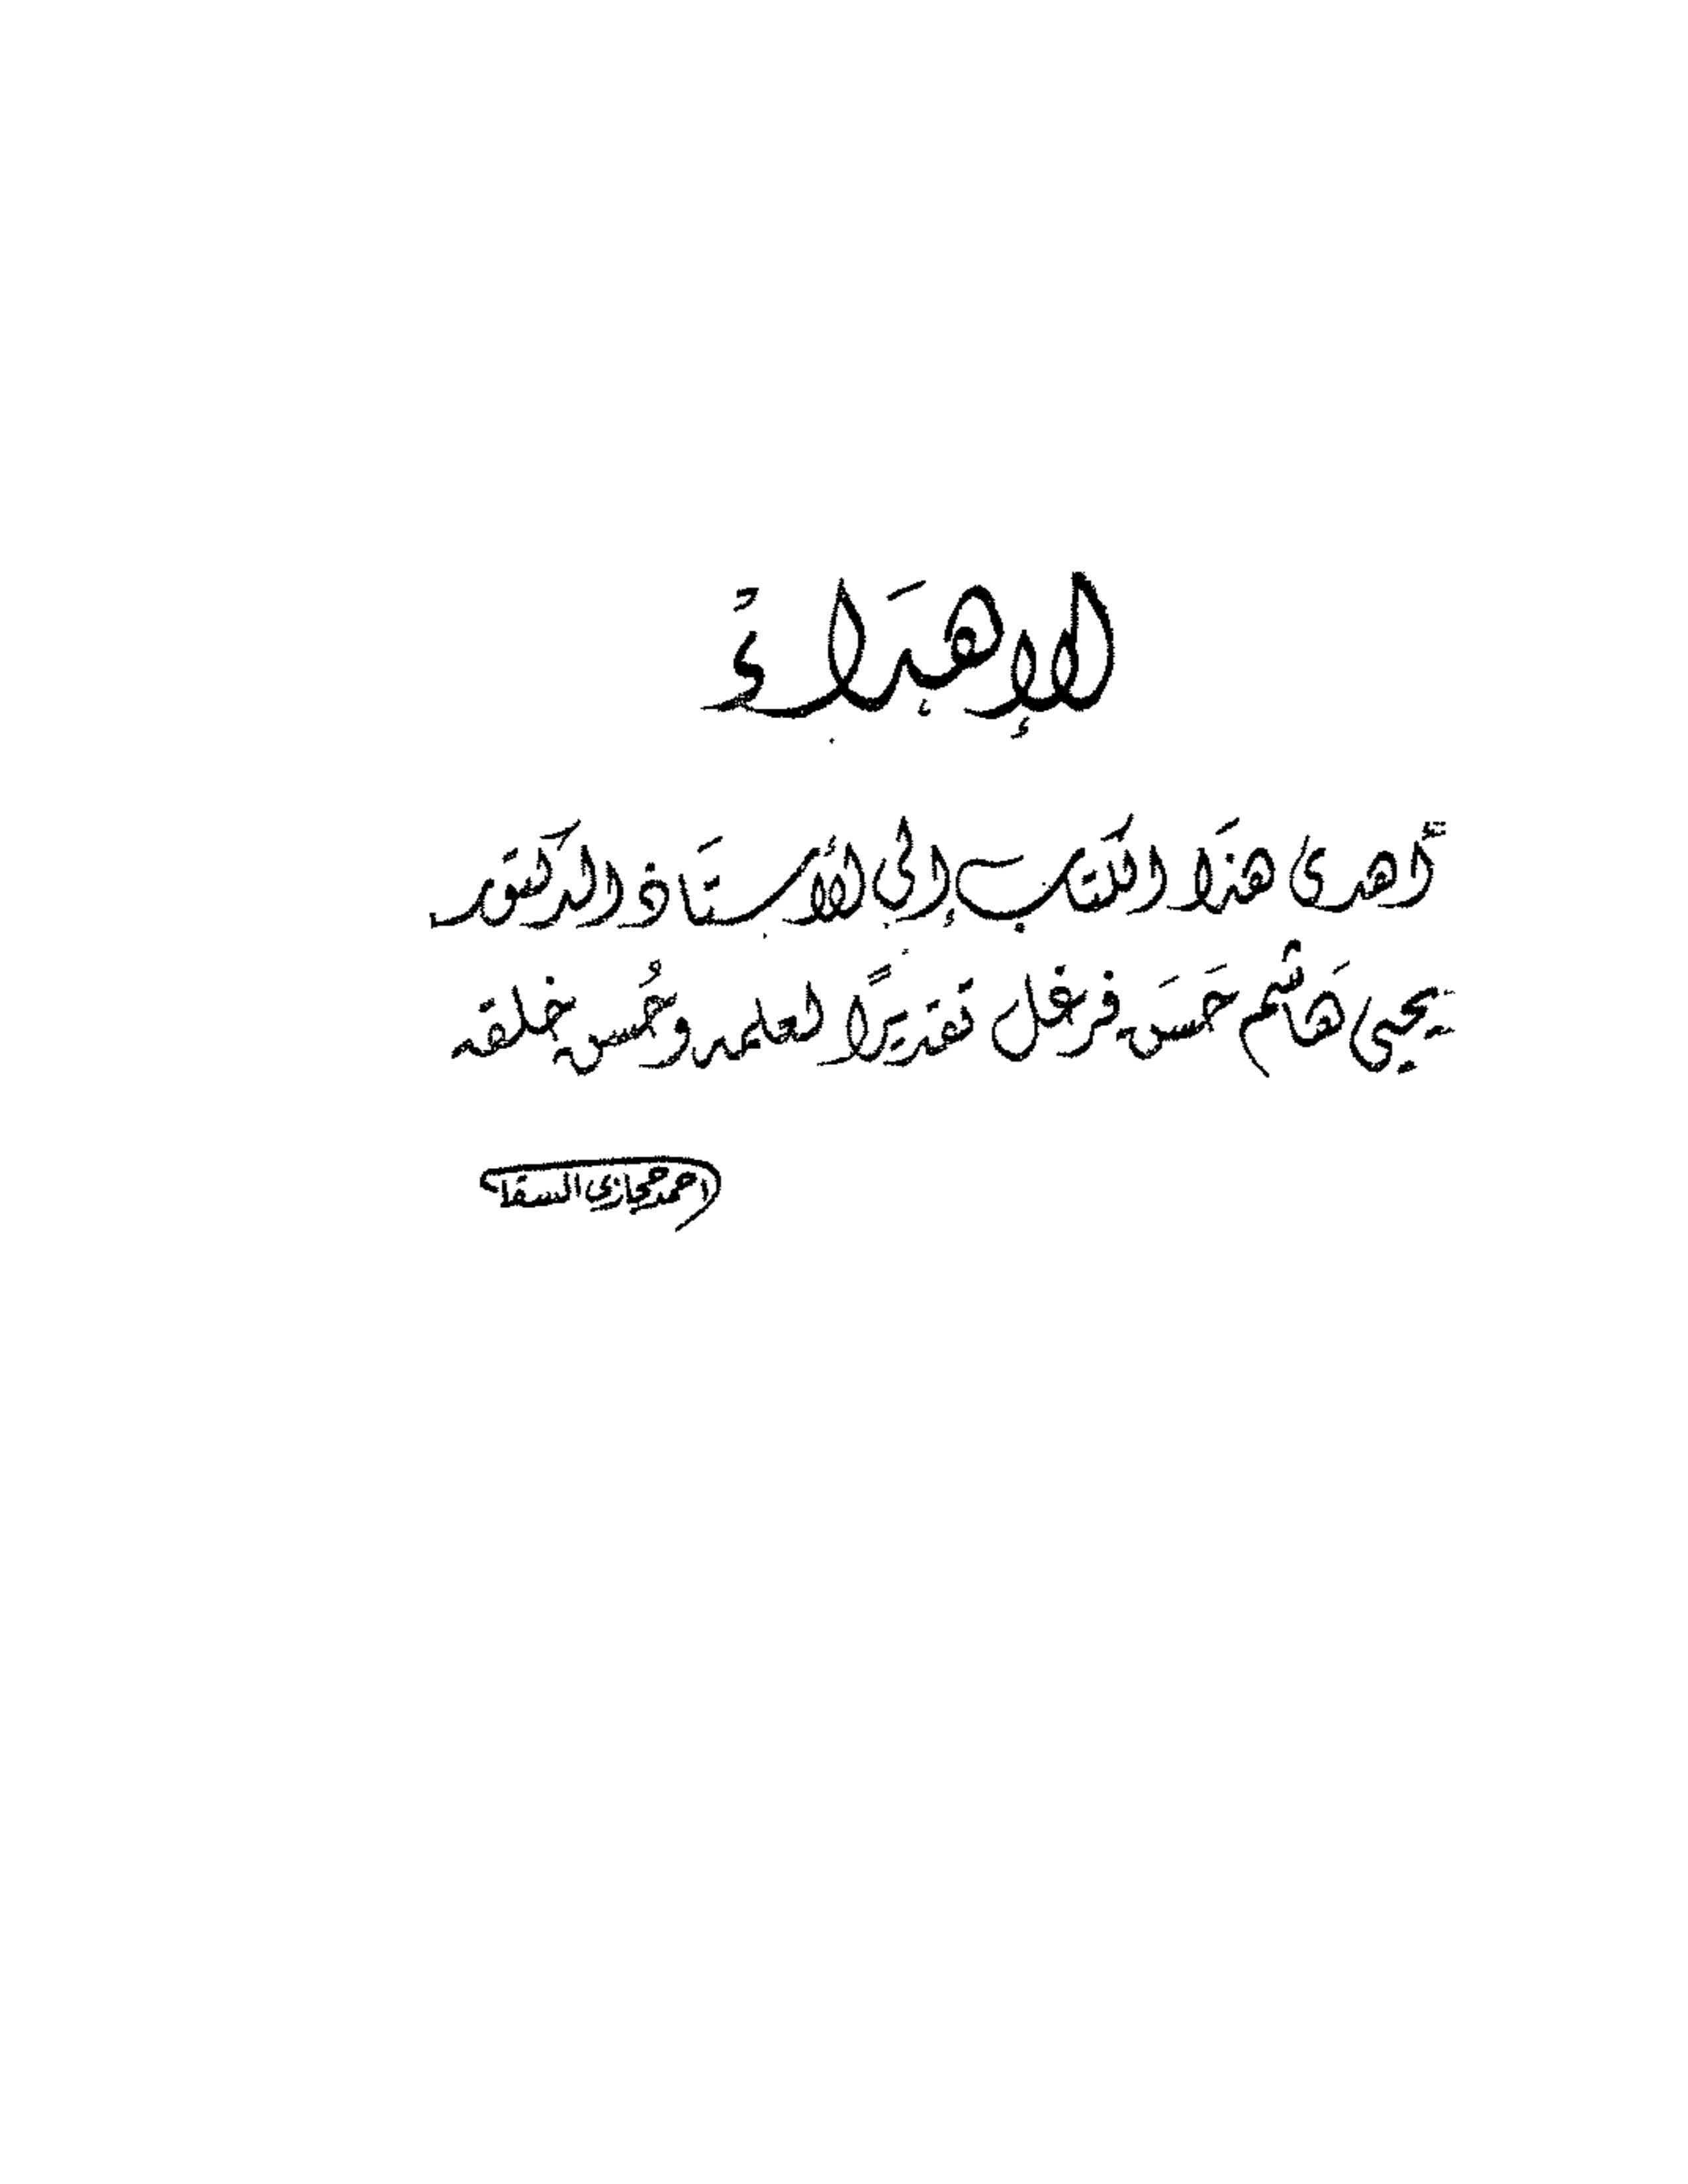 الإهداء
أهدى هذا الكتاب إلى الأستاذ الدكتور
يحيى هاشم حسن فرغل تقديرًا لعلمه وحُسن خلقه
احمد حجازى السقا